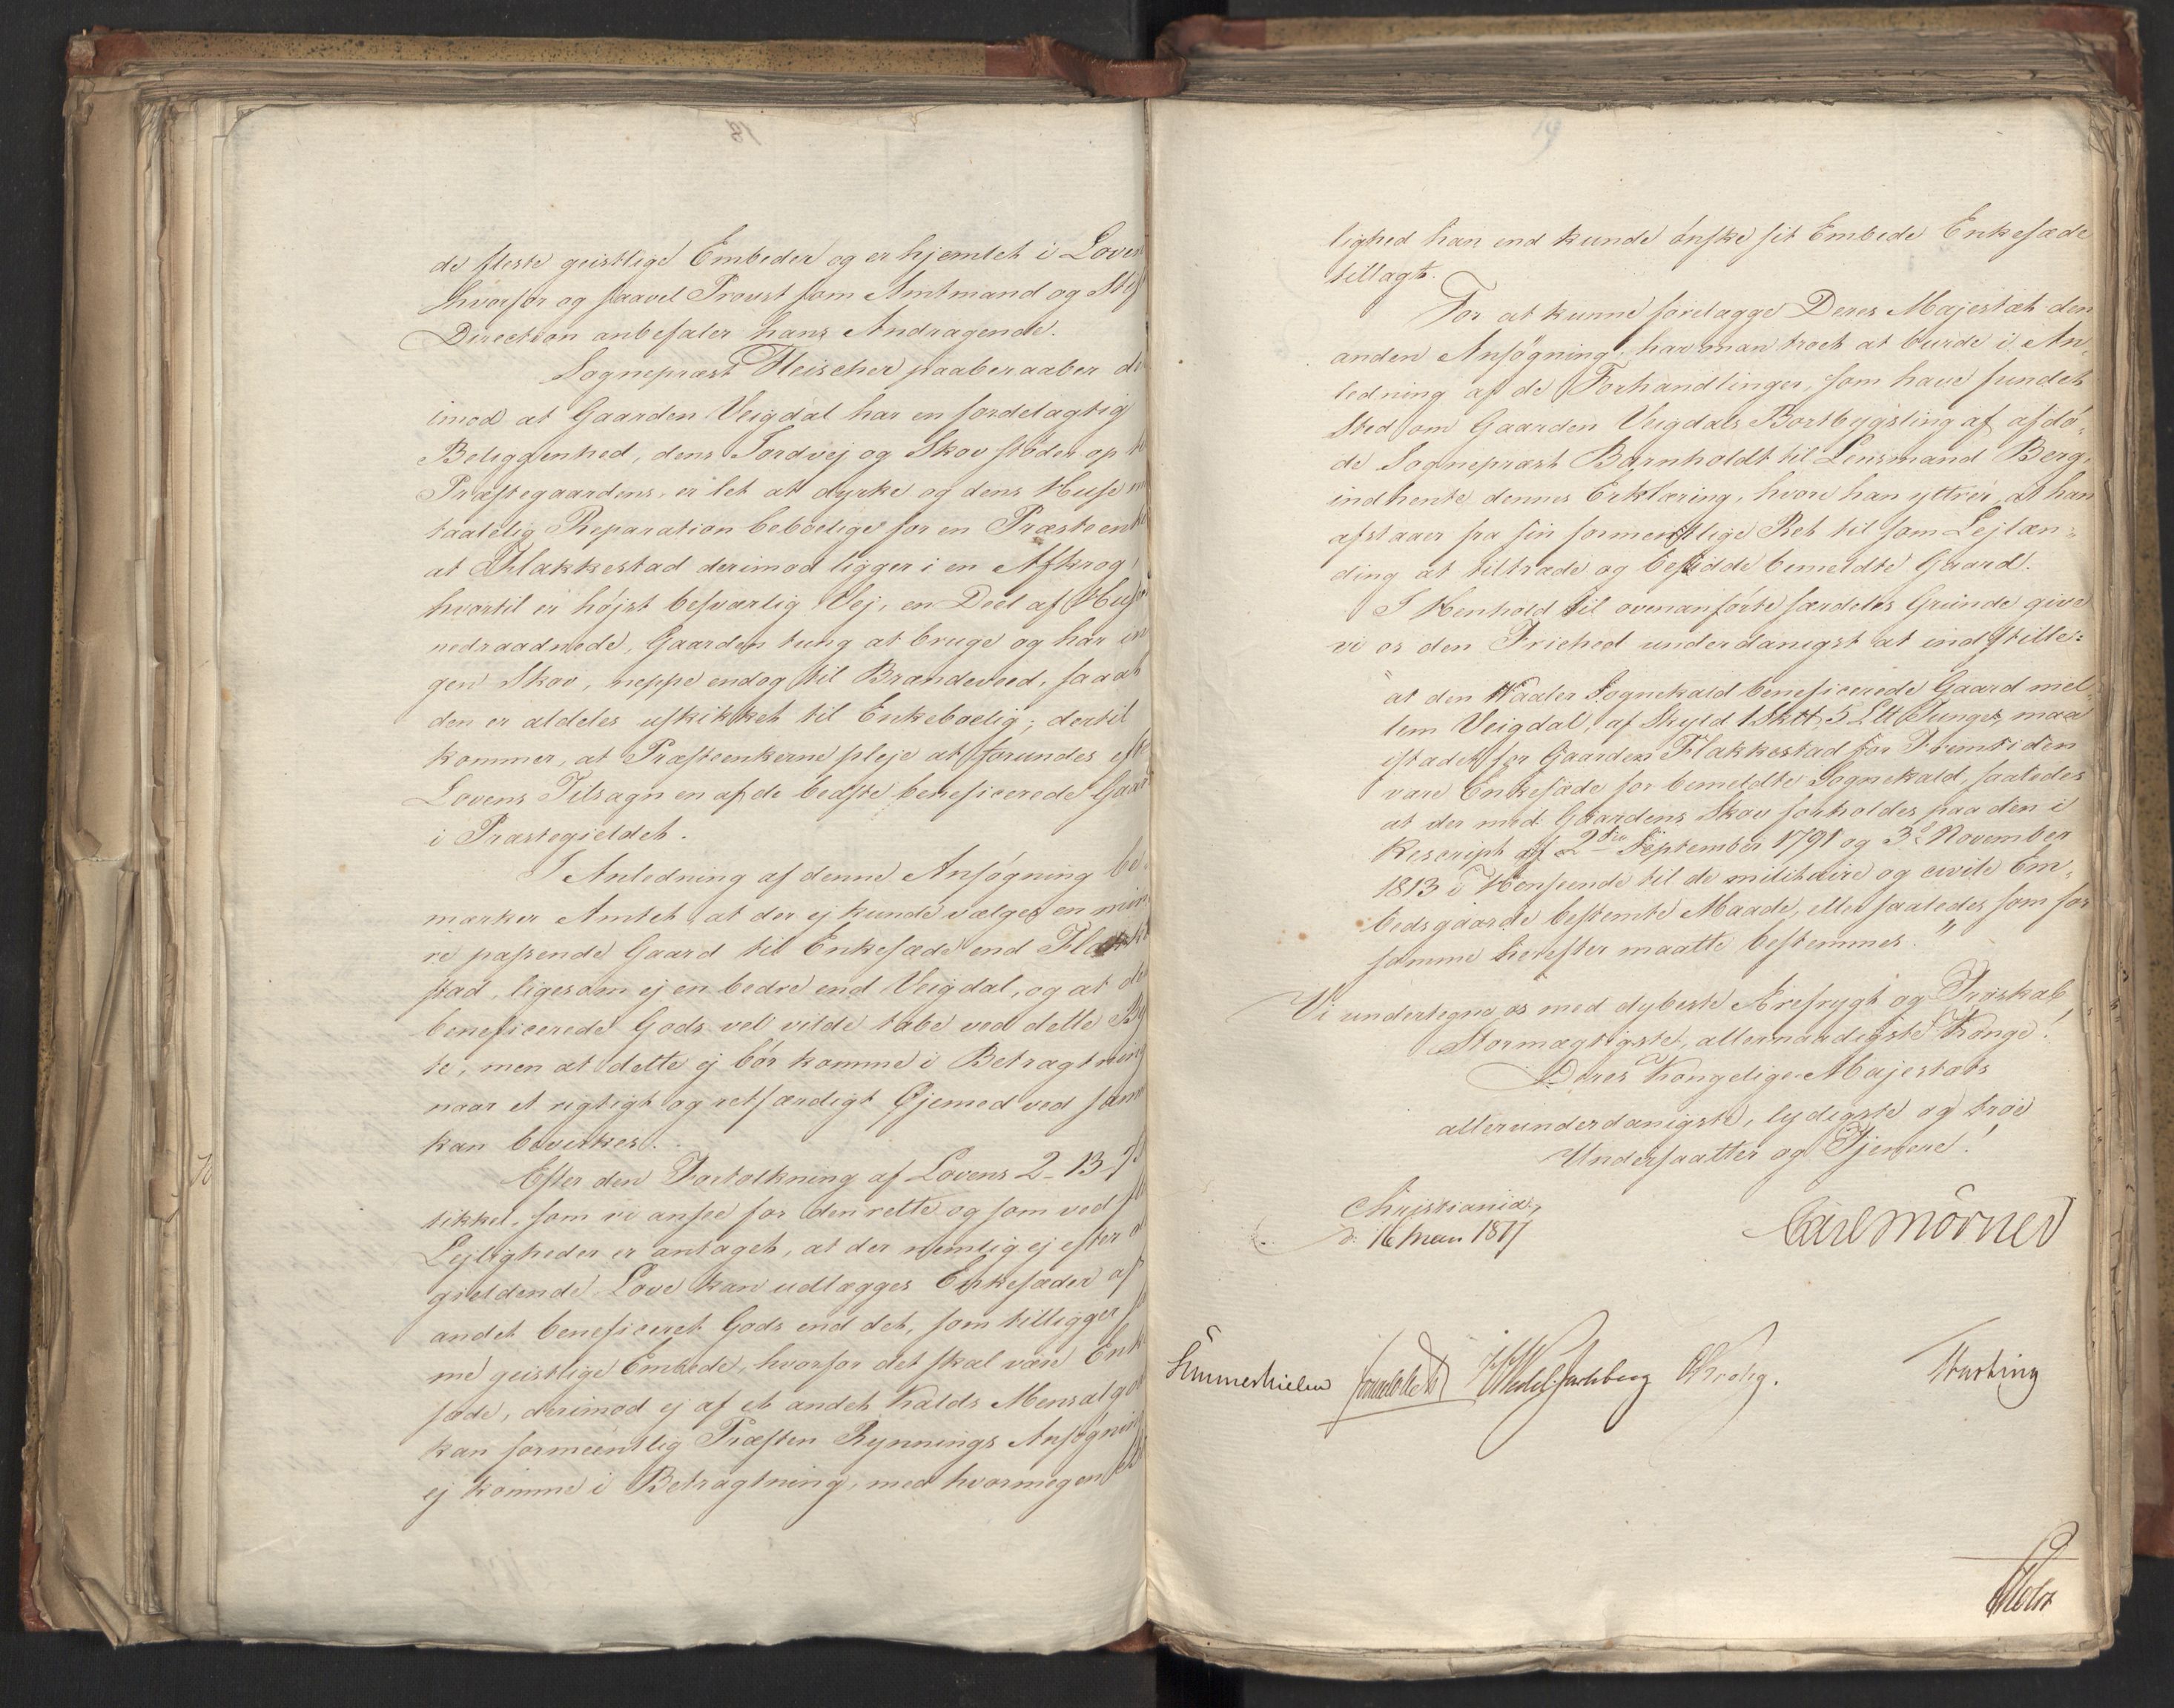 de fleste geistlige Embeder og er hjemlet i Loven
hvorfor og saavel Provst som Amtmand og Stif
Direction anbefaler hans Andragende.
Sognepræst Fleischer paaberaaber de
imod at Gaarden Veigdal har en fordelagtig
Beliggenhed, dens Jordvej og Skov støder op til
Præstegaardens, er let at dyrke og dens Huse
taalelig Reparation beboelige for en Præsteenke
at Flakkestad derimod ligger i en Afkrog,
hvortil er højst besværlig Vej, en Deel af Huse
nedraadnede, Gaarden tung at bruge og har in
gen Skov, neppe endog til Brændeveed, saa at
den er aldeles uskikket til Enkeboelig; dertil
kommer, at Præsteenkerne pleje at forundes eft
Lovens Tilsagn en af de bedste beneficerede Gaar
i Præstegieldet.
I Anledning af denne Ansøgning be-
mærker Amtet at der ej kunde vælges en min
re passende Gaard til Enkesæde end Flakke
stad, ligesom ej en bedre end Veigdal, og at det
beneficerede Gods vel vilde tabe ved dette By
te, men at dette ej bør komme i Betragtning
naar et rigtigt og retfærdigt Øjemed ved sam
kan bevirkes.
Efter den Fortolkning af Lovens 2-13-7
tikkel, som vi ansee for den rette og som ved fle
Lejligheder er antaget, at der nemlig ej efter
gieldende Love kan udlægges Enkesæder af
andet beneficeret Gods end det, som tilligger
me geistlige Embede, hvorfor det skal være Enk
sæde, derimod ej af et andet Kalds Mensalgo
kan formeentlig Præsten Rynnings Ansøgning
ej komme i Betragtning, med hvormegen
19
lighed han end kunde ønske sit Embede Enkesæde
tillagt.
For at kunne forelægge Deres Majestæt den
anden Ansøgning, har man troet at burde i An-
ledning af de Forhandlinger, som have fundet
Sted om Gaarden Veigdals Bortbygsling af afdø-
de Sognepræst Barnholdt til Lensmand Berg,
indhente dennes Erklæring, hvori han yttrer, at han
afstaaer fra sin formentlige Ret til som Lejlæn-
ding at tiltræde og besidde bemeldte Gaard.
I Henhold til ovenanførte særdeles Grunde give
vi os den Friehed underdanigst at indstille:
"at den Waaler Sognekald beneficerede Gaard mel-
lem Veigdal, af Skyld 1 Skt 5 Lt Tunge, maa
istedet for Gaarden Flakkestad for Fremtiden
være Enkesæde for bemeldte Sognekald, saaledes
at der med Gaardens Skov forholdes paa den i
Rescript af 2den September 1791 og 3d November
1813 i Henseende til de militaire og civile Em-
bedsgaarde bestemte Maade, eller saaledes som for
samme herefter maatte bestemmes."
Vi undertegne os med dybeste Ærefrygt og Troskab
Stormægtigste, allernaadigste Konge!
Deres Kongelige Majestæts
allerunderdanigste, lydigste og troe
Undersaatter og Tjenere!
Christiania,
d. 16 1817
Carl Mörner
Sommerhielm JHWedel-Jarlsberg CKrohg. Hartung
Holst